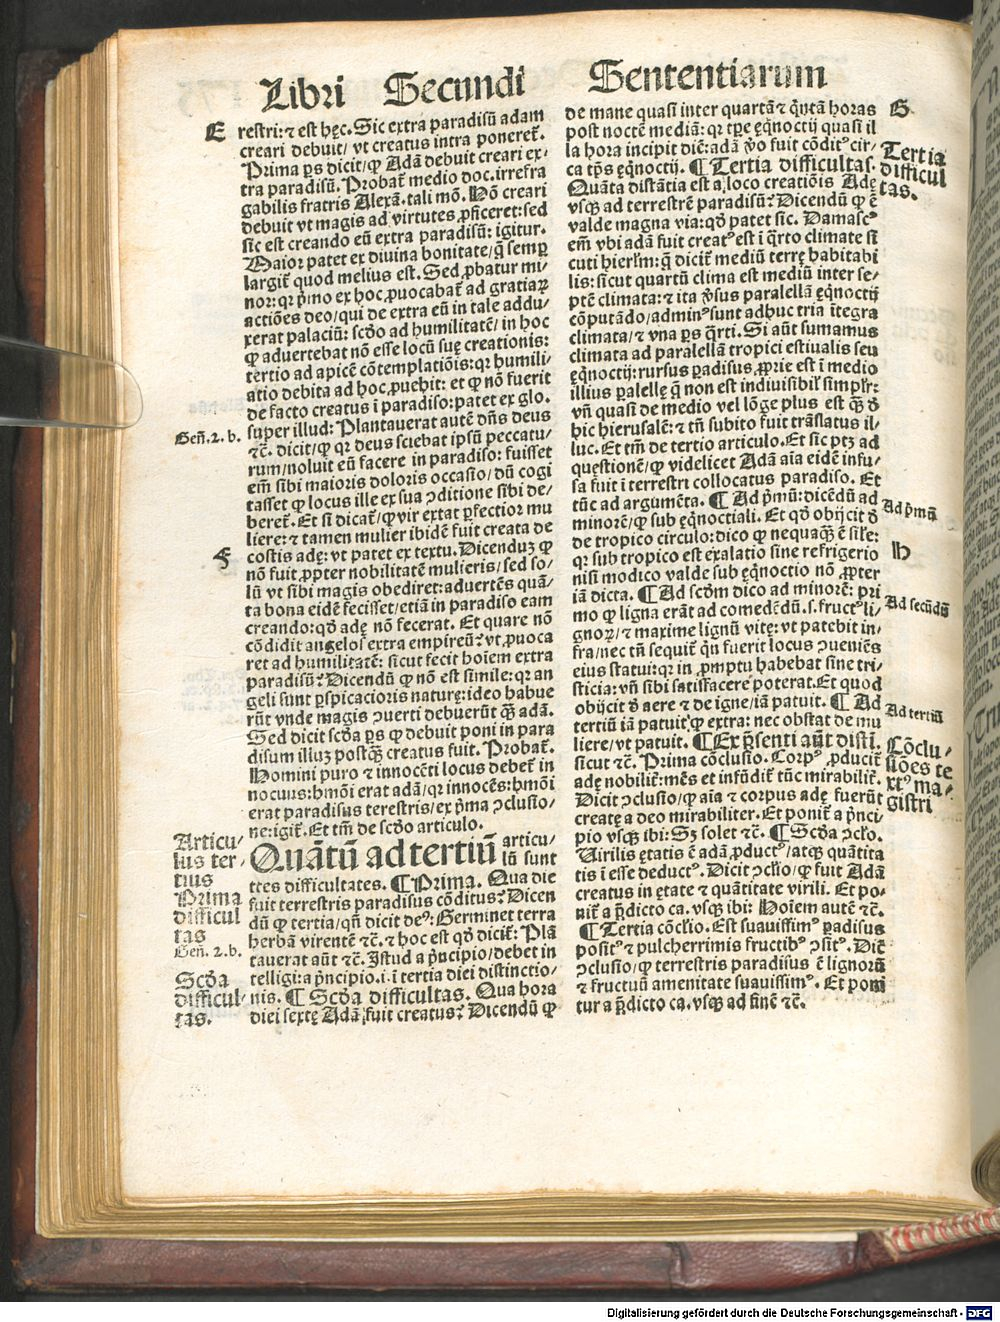 Libri Secundi Sententiarum
E
restri: ⁊ est hęc. Sic extra paradisũ adam
creari debuit/ vt creatus intra poneret̃.
Prima ꝑs dicit/ ꝙ Adã debuit creari ex-
tra paradisũ. Probat̃ medio doc. irrefra
gabilis fratris Alexã. tali mõ. Nõ creari
debuit vt magis ad virtutes ꝓficeret: sed
sic est creando eũ extra paradisũ: igitur.
Maior patet ex diuina bonitate/ q̃ semꝑ
largit̃ quod melius est. Sed ꝓbatur mi-
nor: qr p̃mo ex hoc ꝓuocabat̃ ad gratiaꝝ
actiões deo/ qui de extra eũ in tale addu/
xerat palaciũ: scďo ad humilitatẽ/ in hoc
ꝙ aduertebat nõ esse locũ suę creationis:
tertio ad apicẽ cõtemplatiõis: qr humili/
atio debita ad hoc ꝓuehit: et ꝙ nõ fuerit
de facto creatus ĩ paradiso: patet ex glo.
Geñ. 2. b.
super illud: Plantauerat autẽ dñs deus
⁊c̃. dicit/ ꝙ qr deus sciebat ipsũ peccatu/
rum/ noluit eũ facere in paradiso: fuisset
em̃ sibi maioris doloris occasio/ dũ cogi
tasset ꝙ locus ille ex sua ↄditione sibi de/
beret̃. Et si dicat̃/ ꝙ vir extat ꝑfectior mu
liere: ⁊ tamen mulier ibidẽ fuit creata de
F
costis adę: vt patet ex textu. Dicenduꝫ ꝙ
nõ fuit ꝓpter nobilitatẽ mulieris/ sed so/
lũ vt sibi magis obediret: aduertẽs quã/
ta bona eidẽ fecisset/ etiã in paradiso eam
creando: qďo adę nõ fecerat. Et quare nõ
cõdidit angelos extra empireũ? vt ꝓuoca
ret ad humilitatẽ: sicut fecit hoĩem extra
paradisũ? Dicendũ ꝙ nõ est simile: qr an
geli sunt ꝑspicacioris naturę: ideo habue
rũt vnde magis ↄuerti debuerũt q̃ꝫ adã.
Sed dicit scďa ꝑs ꝙ debuit poni in para
disum illuꝫ postq̃ꝫ creatus fuit. Probat̃.
Homini puro ⁊ innocẽti locus debet̃ in
nocuus: hmõi erat adã/ qr innocẽs: hmõi
erat paradisus terestris/ ex p̃ma ↄclusio/
ne: igit̃. Et tm̃ de scďo articulo.
Articu-
lus ter-
tius
Quãtũ ad tertiũ articu/
lũ sunt
tres difficultates. ¶ Prima. Qua die
Prima
difficul
tas
fuit terrestris paradisus cõditus? Dicen
dũ ꝙ tertia/ qñ dicit deꝰ: Germinet terra
herbã virentẽ ⁊c̃. ⁊ hoc est qďo dicit̃: Plã
Geñ. 2. b.
tauerat aũt ⁊c̃. Istud a p̃ncipio/ debet in
telligi: a p̃ncipio .i. ĩ tertia diei distinctio/
Scďa
difficul-
tas.
nis. ¶ Scďa difficultas. Qua hora
diei sextę Adã fuit creatus? Dicendũ ꝙ
de mane quasi inter quartã ⁊ q̃ĩtã horas
G
post noctẽ mediã: qr tꝑe ęq̃noctij quasi il
la hora incipit diẽ: adã ꝟo fuit cõditꝰ cir/
ca tp̃s ęq̃noctij. ¶ Tertia difficultas.
Tertia
difficul
tas.
Quãta distãtia est a loco creatiõis Adę
vsqꝫ ad terrestrẽ paradisũ? Dicendũ ꝙ ẽ
valde magna via: qďo patet sic. Damascꝰ
em̃ vbi adã fuit creatꝰ est ĩ q̃rto climate si
cuti hierl'm: q̃ dicit̃ mediũ terrę habitabi
lis: sicut quartũ clima est mediũ inter se-
ptẽ climata: ⁊ ita ꝟsus paralellã ęq̃noctij
cõputãdo/ adminꝰ sunt adhuc tria ĩtegra
climata/ ⁊ vna ꝑs q̃rti. Si aũt sumamus
climata ad paralellã tropici estiualis seu
ęq̃noctij: rursus ꝑadisus ꝓprie est ĩ medio
illius ꝑalellę q̃ non est indiuisibil' simpl'r:
vñ quasi de medio vel lõge plus est q̃ꝫ ď
hic hierusalẽ: ⁊ tñ subito fuit trãslatus il-
luc. Et tm̃ de tertio articulo. Et sic ptꝫ ad
questionẽ/ ꝙ videlicet Adã aĩa eidẽ infu/
sa fuit ĩ terrestri collocatus paradiso. Et
tũc ad argumẽta. ¶ Ad p̃mũ: dicẽdũ ad
Ad p̃mũ
minorẽ/ ꝙ sub ęq̃noctiali. Et qďo obijcit ď
de tropico circulo: dico ꝙ nequaq̃ꝫ ẽ sil'e:
H
qr sub tropico est exalatio sine refrigerio
nisi modico valde sub ęq̃noctio nõ ꝓpter
iã dicta. ¶ Ad scďm dico ad minorẽ: pri
Ad secũdũ
mo ꝙ ligna erãt ad comedẽdũ .s. fructꝰ li/
gnoꝝ/ ⁊ maxime lignũ vitę: vt patebit in/
fra/ nec tñ sequit̃ qñ fuerit locus ↄueniẽs
eius statui: qr in ꝓmptu habebat sine tri/
sticia: vñ sibi satisfacere poterat. Et quod
obijcit ď aere ⁊ de igne/ iã patuit. ¶ Ad
Ad tertiũ
tertiũ iã patuit ꝙ extra: nec obstat de mu
liere/ vt patuit. ¶ Ex p̃senti aũt disti.
Cõclu-
siões te
xtꝰ ma-
gistri
sicut ⁊c̃. Prima cõclusio. Corpꝰ ꝓducit̃
adę nobilit̃: mẽs et infũdit̃ tũc mirabilit̃.
Dicit ↄclusio/ ꝙ aĩa ⁊ corpus adę fuerũt
creatę a deo mirabiliter. Et ponit̃ a p̃nci-
pio vsqꝫ ibi: Sꝫ solet ⁊c̃. ¶ Scďa ↄcl'o.
Uirilis ętatis ẽ adã ꝓductꝰ/ atqꝫ quãtita
tis ĩ esse deductꝰ. Dicit ↄcl'io/ ꝙ fuit Adã
creatus in ętate ⁊ quãtitate virili. Et po-
nit̃ a p̃dicto ca. vsqꝫ ibi: Hoĩem autẽ ⁊c̃.
¶ Tertia cõcl'io. Est suauissimꝰ ꝑadisus
positꝰ ⁊ pulcherrimis fructibꝰ ↄsitꝰ. Dic̃
ↄclusio/ ꝙ terrestris paradisus ẽ lignorũ
⁊ fructuũ amenitate suauissimꝰ. Et poni
tur a p̃dicto ca. vsqꝫ ad finẽ ⁊c̃.
Digitalisierung gefördert durch die Deutsche Forschungsgemeinschaft - DFG